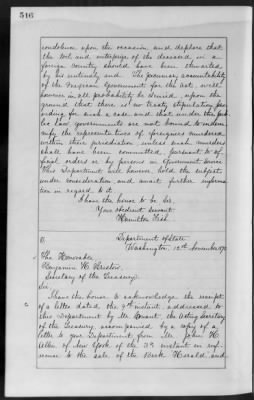 516
condolence upon the occasion, and deplore that
the toil and enterprise of the deceased, in a
foreign country should have been thwarted
by his untimely end. The pecuniary accountability
of the Mexican Government for the act, will
however in all probability be denied upon the
ground that there is no treaty stipulation pro-
viding for such a case and that under the pub-
lic law, governments are not bound to indem-
nify the representatives of foreigners murdered
within their jurisdiction unless such murders
shall have been committed, pursuant to of-
ficial orders or by persons in Government service.
This Department will however hold the subject
under consideration and await further informa-
tion in regard to it.
I have the honor to be Sir,
Your Obedient Servant
Hamilton Fish.
Department of State
Washington, 12th November 187
The Honorable
Benjamin H. Bristow,
Secretary of the Treasury.
Sir
I have the honor to acknowledge the receipt
of a letter dated, the 9th instant, addressed to
this Department by Mr. Conant, the Acting Secretary
of the Treasury, accompanied by a copy of a
letter to your Department from Mr. John H.
Allen of New York of the 3rd instant in ref-
erence to the sale of the Bark Herald and